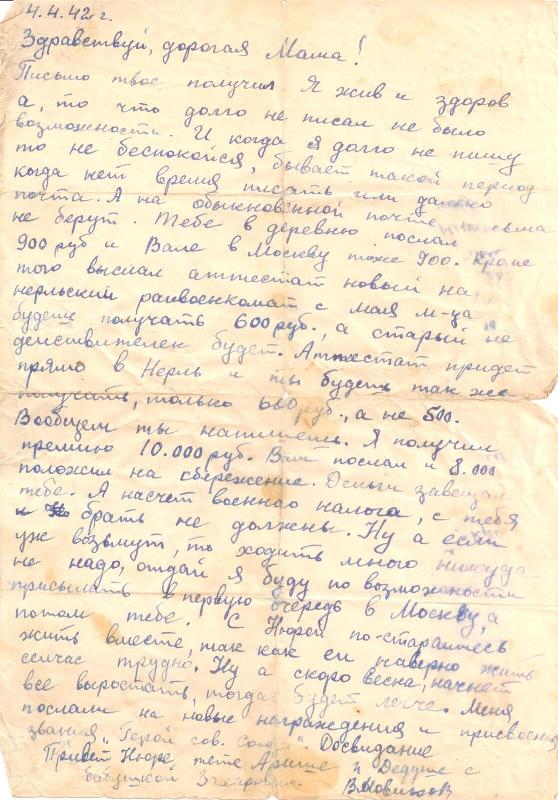 4.4.42 г.
Здравствуй, дорогая Мама!
Письмо твое получил Я жив и здоров
а, то что долго не писал не было
возможности. И когда я долго не пишу
то не беспокойся, бывает такой период
когда нет время писать или далеко
почта. А на обыкновенной почте письма
не берут. Тебе в деревню послал
900 руб и Вале в Москву тоже 900. Кроме
того выслал аттестат новый на
нерльский райвоенкомат, с мая м-ца
будешь получать 600 руб., а старый не
действителек будет. Аттестат придет
прямо в Нерль и ты будешь так же
получать, только 600 руб., а не 500.
Вообщем ты напишешь. Я получил
премию 10.000 руб. Вам послал и 8.000
положил на сбережение. Деньги завещал
тебе. А насчет военнао налога, с тебя
брать не должны. Ну а если
уж возьмут, то ходить много никуда
не надо, отдай я буду по возможности
присылать в первую очередь в Москву, а
потом тебе. С Нюрой по-старайтесь
жить вместе, так как ей наверно жить
сейчас трудно. Ну а скоро весна, начнет
все выростать, тогда будет легче. Меня
послали на новые награждения и присвоения
звания „Герой сов. Союза" Досвидание
Привет Нюре, тете Арише и Дедушке с
бабушкой